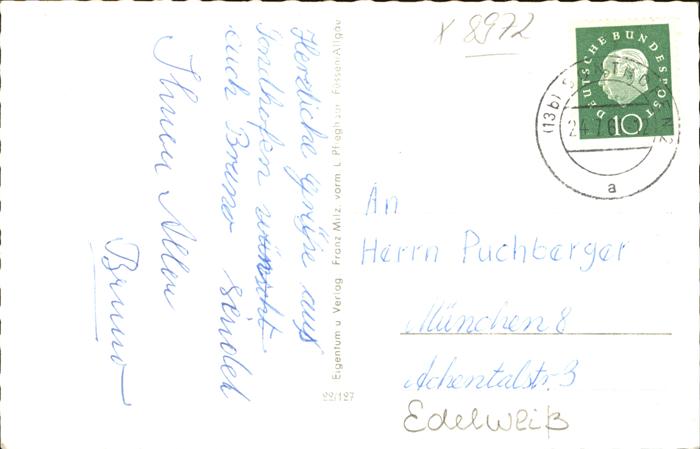 Herzliche Grüße aus
Sondhofen wünscht
euch Bruno sendet
Ihnen Allen
Bruno
Eigentum u Verlag Franz Milz, vorm L Pfleghaar Füssen-Allgäu
22/127
x 8972
DEUTSCHE BUNDESPOST
10
(13b)
24.7.6
a
An
Herrn Puchberger
München 8
Achentalstr. 3
Edelweiß